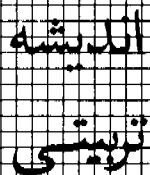 اندیشه
تربیتی